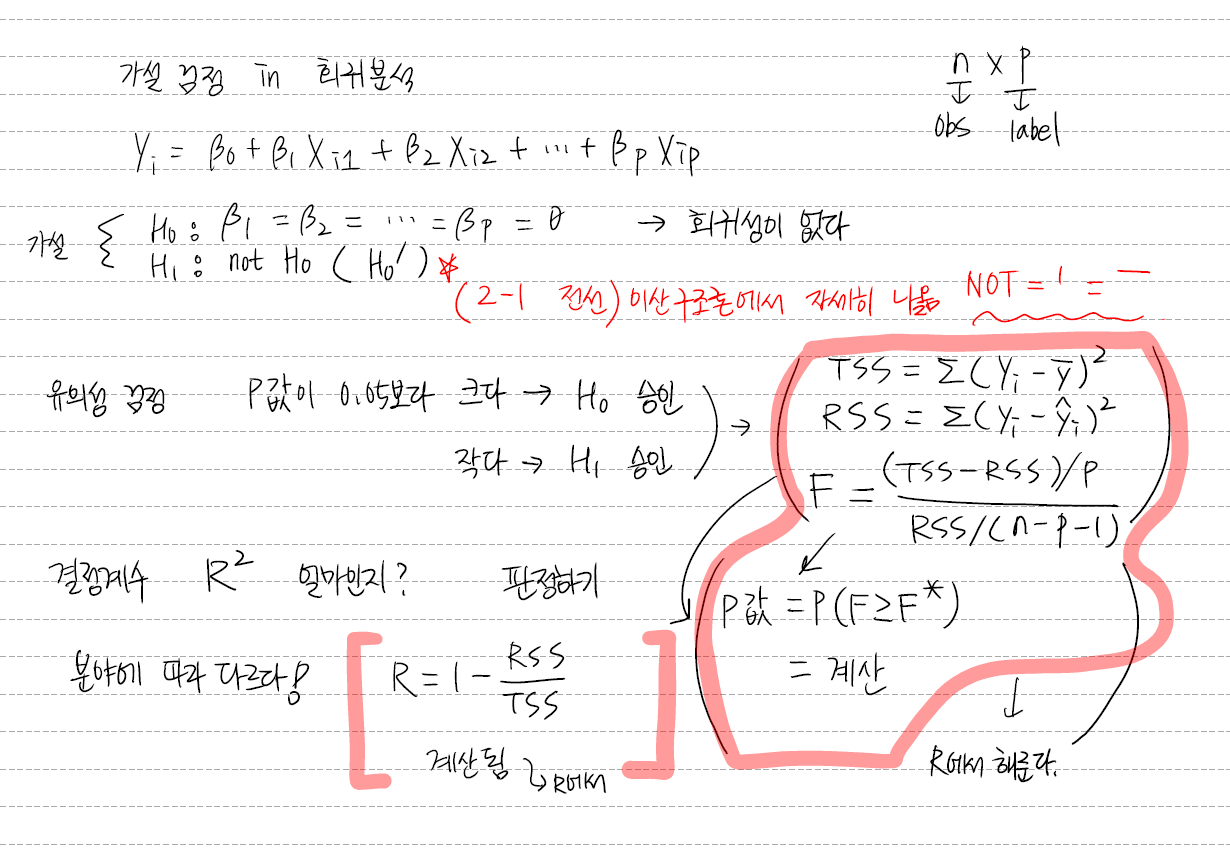 가설 검정 in 회귀분석
n × p
obs label
Yi = β0 + β1 Xi1 + β2 Xi2 + ⋯ + βp Xip
가설 { H0 : β1 = β2 = ⋯ = βp = 0 → 회귀성이 없다
H1 : not H0 ( H0′ ) *
(2-1 전선) 이산구조론에서 자세히 나옴 NOT = ′ = ‾
유의성 검정 P값이 0.05보다 크다 → H0 승인
작다 → H1 승인
TSS = Σ(Yi - ȳ)²
RSS = Σ(Yi - ŷi)²
F = (TSS-RSS)/P / RSS/(n-p-1)
P값 = P(F≥F*)
= 계산
R에서 해준다.
결정계수 R² 얼마인지? 판정하기
분야에 따라 다르다!
R = 1 - RSS/TSS
계산됨 → R에서